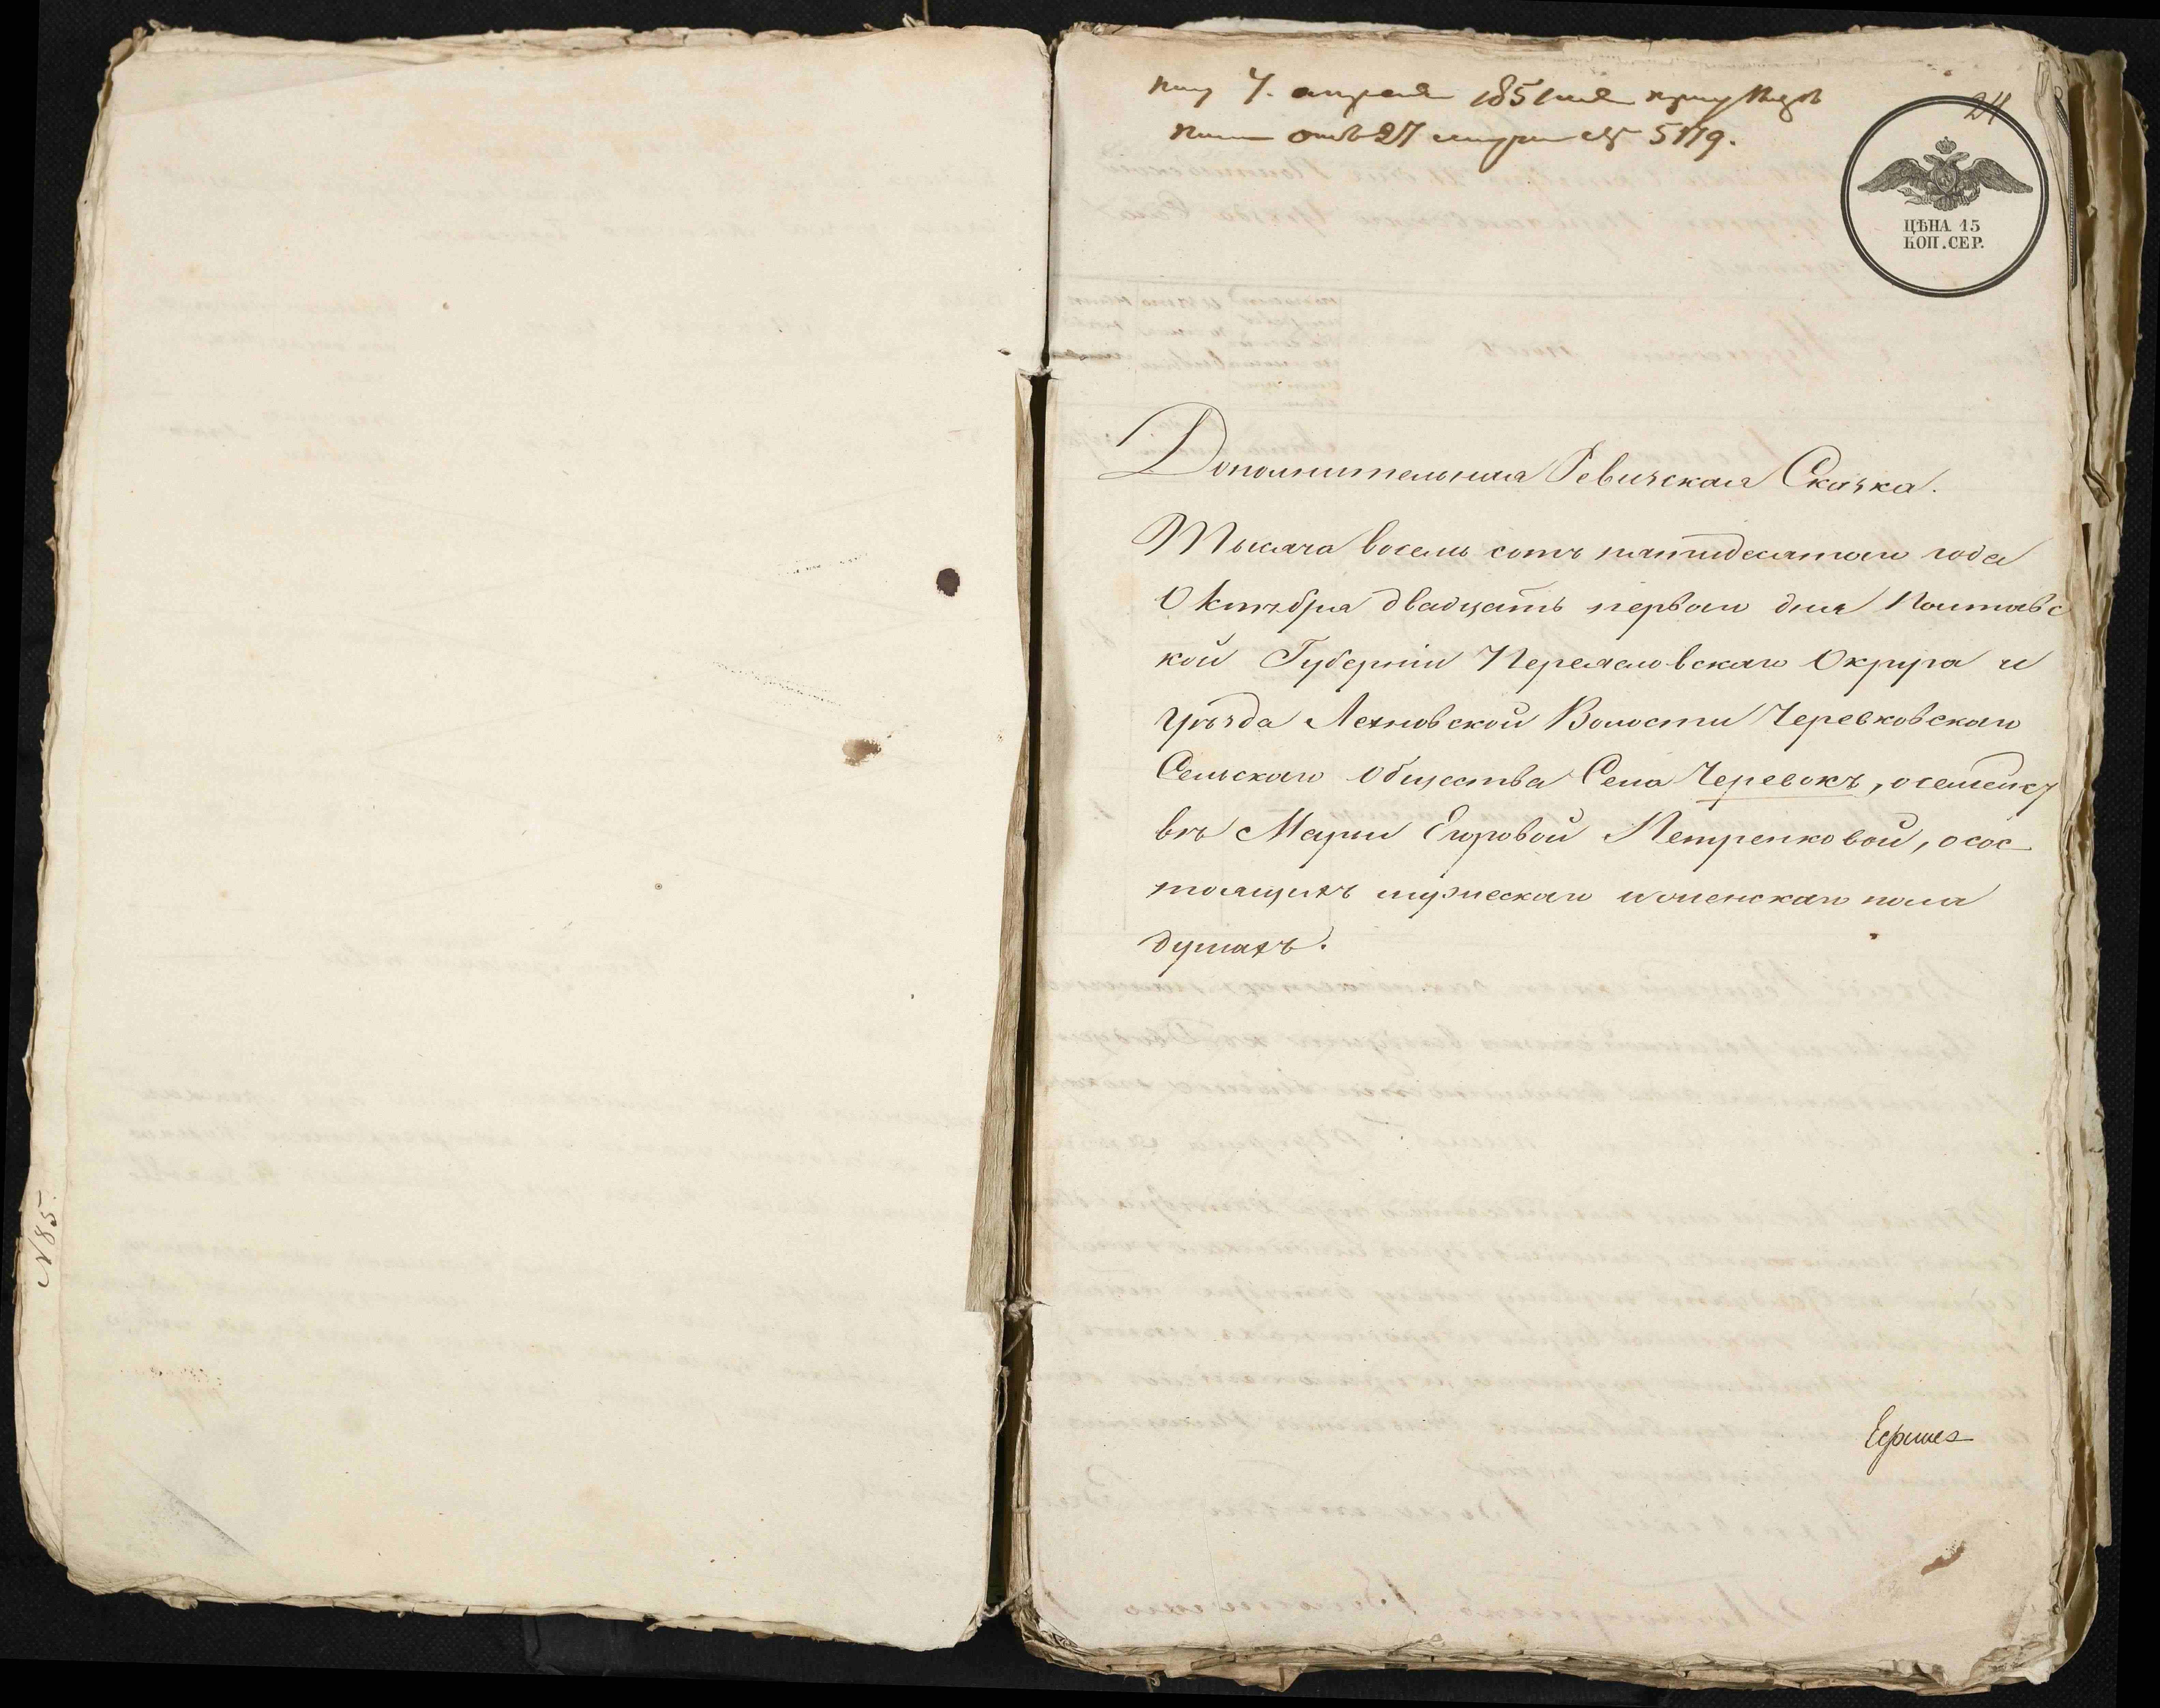 7. апреля 1851
отъ 27 № 5179.
24
ЦѢНА 15
КОП. СЕР.
Дополнительная Ревизская Сказка.
Тысяча восемь сотъ пятидесятаго года
Октября двадцать перваго дня Полтавс
кой Губерніи Переяславскаго Округа и
уѣзда Лехновской Волости Черевковскаго
Сельскаго Общества Села Черевокъ, о семейст
вѣ Маріи Егоровой Петренковой, о сос
тоящихъ мужескаго и женскаго пола
душахъ.
№ 85.